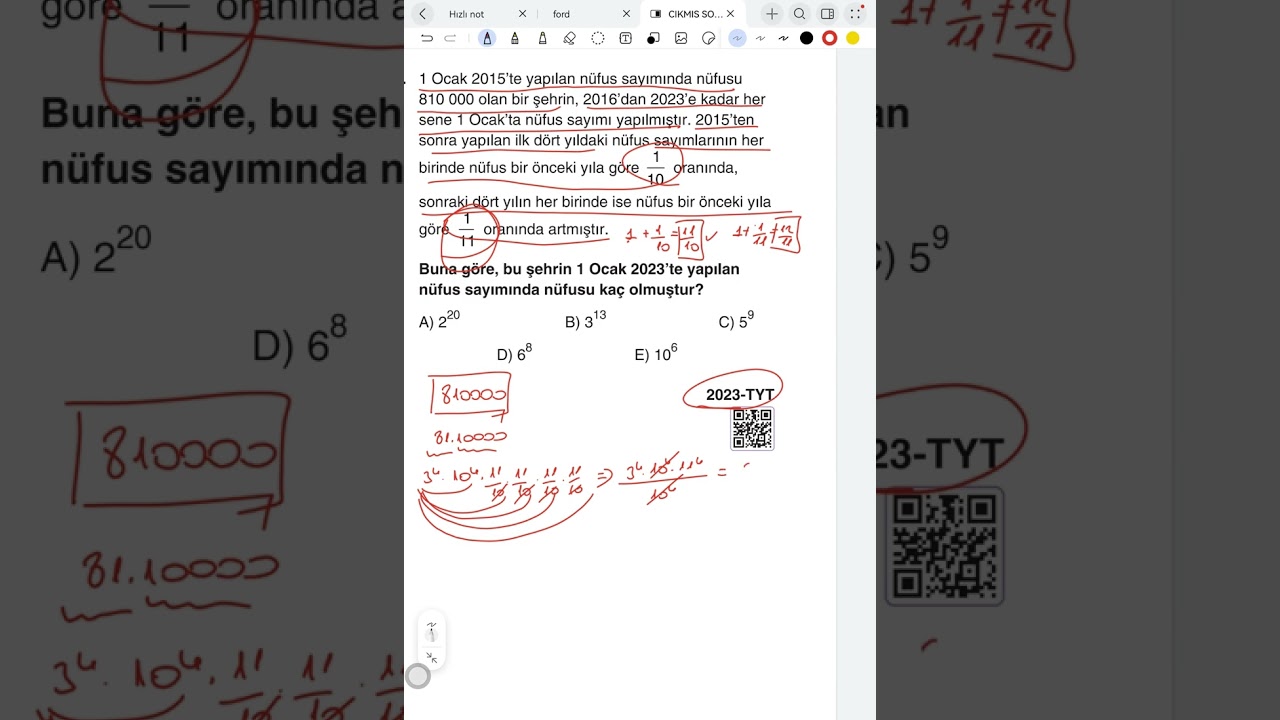 Hızlı not
ford
CIKMIS SO...
1 Ocak 2015'te yapılan nüfus sayımında nüfusu
810 000 olan bir şehrin, 2016'dan 2023'e kadar her
sene 1 Ocak'ta nüfus sayımı yapılmıştır. 2015'ten
sonra yapılan ilk dört yıldaki nüfus sayımlarının her
birinde nüfus bir önceki yıla göre 1/10 oranında,
sonraki dört yılın her birinde ise nüfus bir önceki yıla
göre 1/11 oranında artmıştır. 1 + 1/10 = 11/10 ✓ 1 + 1/11 = 12/11
Buna göre, bu şehrin 1 Ocak 2023'te yapılan
nüfus sayımında nüfusu kaç olmuştur?
A) 2^20 B) 3^13 C) 5^9
D) 6^8 E) 10^6
810000
2023-TYT
81.10000
3^4 · 10^4 · 11/10 · 11/10 · 11/10 · 11/10 ⇒ 3^4 · 10^4 · 11^4 / 10^4 =
göre 11 oranında a
1 + 1/11 = 12/11
Buna göre, bu şeh
an
nüfus sayımında n
A) 2^20
) 5^9
D) 6^8
810000
23-TYT
81.10000
3^4 · 10^4 · 11/10 · 11/10 · 11